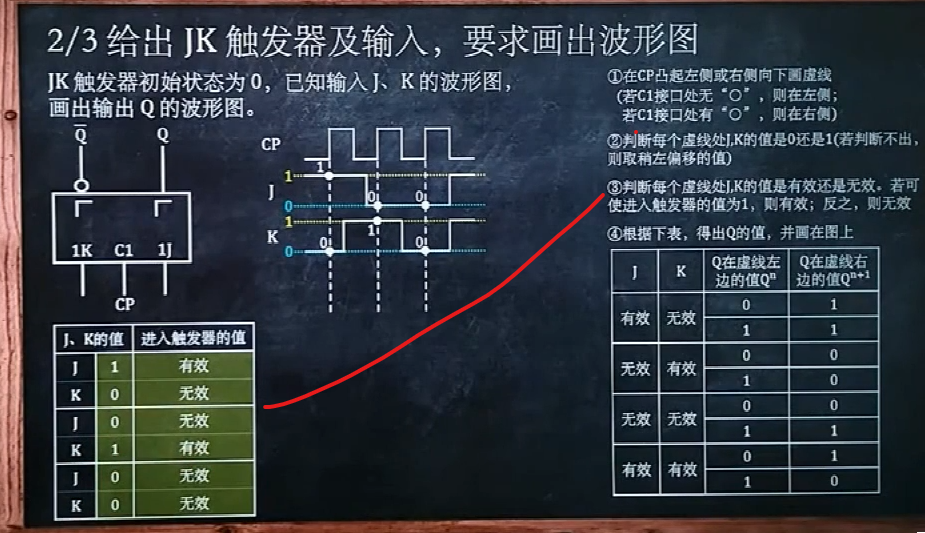 2/3 给出 JK 触发器及输入，要求画出波形图
JK 触发器初始状态为 0，已知输入 J、K 的波形图，
画出输出 Q 的波形图。
Q̅ Q
1K C1 1J
CP
CP
1
J
0
1
K
0
1 0 0
0 1 0
J、K的值 进入触发器的值
J 1 有效
K 0 无效
J 0 无效
K 1 有效
J 0 无效
K 0 无效
①在CP凸起左侧或右侧向下画虚线
(若C1接口处无“○”，则在左侧；
若C1接口处有“○”，则在右侧)
②判断每个虚线处J,K的值是0还是1(若判断不出，
则取稍左偏移的值)
③判断每个虚线处J,K的值是有效还是无效。若可
使进入触发器的值为1，则有效；反之，则无效
④根据下表，得出Q的值，并画在图上
J K Q在虚线左边的值Qⁿ Q在虚线右边的值Qⁿ⁺¹
有效 无效 0 1
1 1
无效 有效 0 0
1 0
无效 无效 0 0
1 1
有效 有效 0 1
1 0